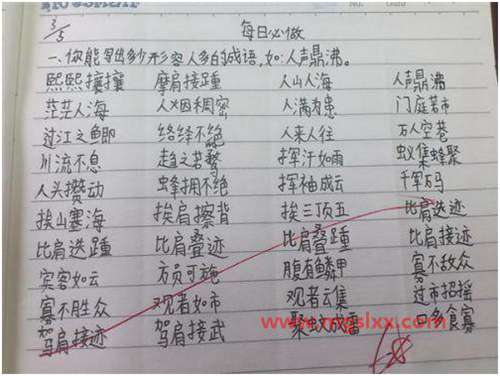 3/5 每日必做
一、你能写出多少形容人多的成语,如:人声鼎沸。
熙熙攘攘 摩肩接踵 人山人海 人声鼎沸
茫茫人海 人烟稠密 人满为患 门庭若市
过江之鲫 络绎不绝 人来人往 万人空巷
川流不息 趋之若鹜 挥汗如雨 蚁集蜂聚
人头攒动 蜂拥不绝 挥袖成云 千军万马
挨山塞海 挨肩擦背 挨三顶五 比肩迭迹
比肩迭踵 比肩叠迹 比肩叠踵 比肩接迹
宾客如云 方员可施 腹有鳞甲 寡不敌众
寡不胜众 观者如市 观者云集 过市招摇
驾肩接迹 驾肩接武 聚蚊成雷 口多食寡